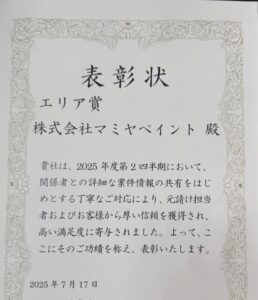 表彰状
エリア賞
株式会社マミヤペイント 殿
貴社は、2025 年度第2四半期において、
関係者との詳細な案件情報の共有をはじ
めとする丁寧なご対応により、元請け担当
者およびお客様から厚い信頼を獲得され、
高い満足度に寄与されました。よって、こ
こにそのご功績を称え、表彰いたします。
2025 年 7 月 17 日